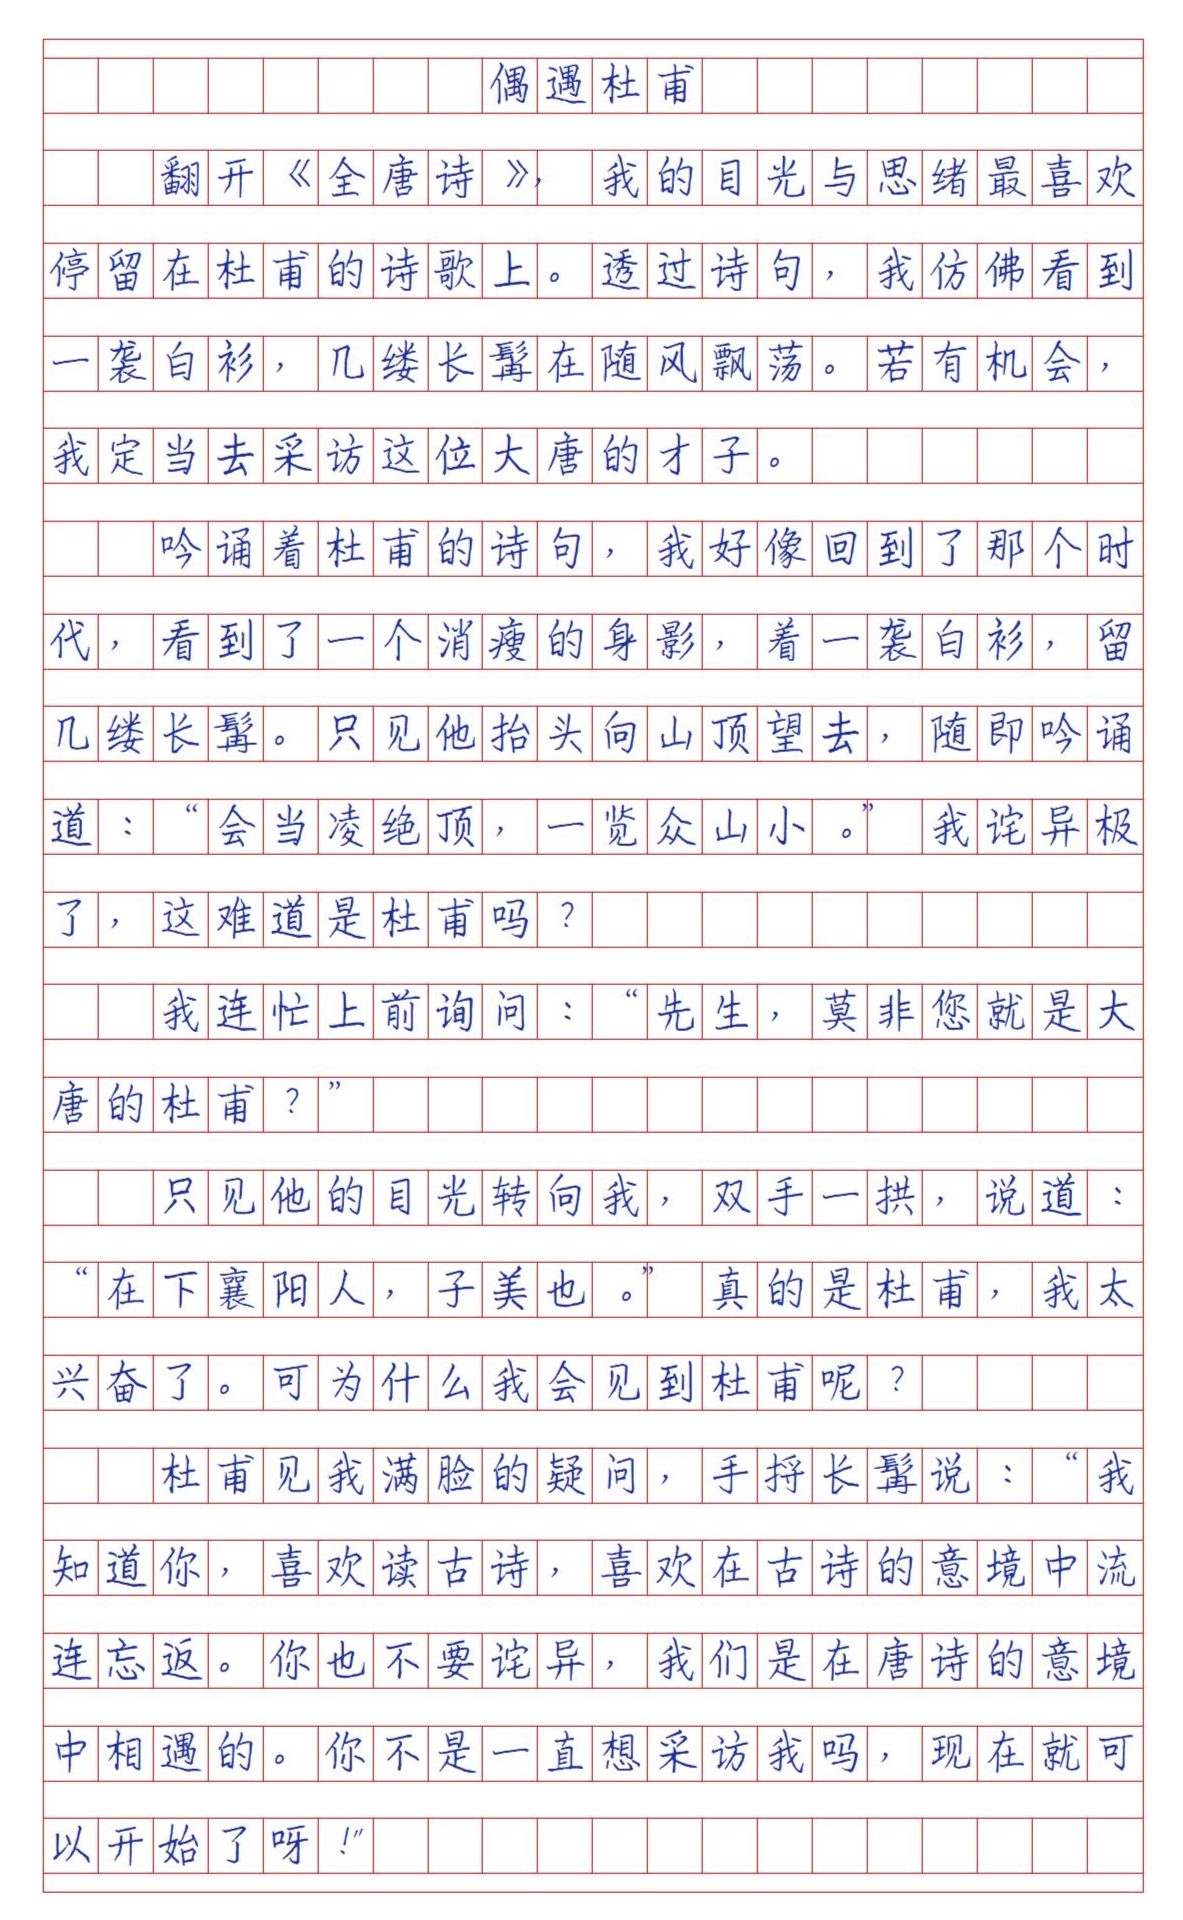 偶遇杜甫
翻开《全唐诗》，我的目光与思绪最喜欢
停留在杜甫的诗歌上。透过诗句，我仿佛看到
一袭白衫，几缕长髯在随风飘荡。若有机会，
我定当去采访这位大唐的才子。
吟诵着杜甫的诗句，我好像回到了那个时
代，看到了一个消瘦的身影，着一袭白衫，留
几缕长髯。只见他抬头向山顶望去，随即吟诵
道：“会当凌绝顶，一览众山小。”我诧异极
了，这难道是杜甫吗？
我连忙上前询问：“先生，莫非您就是大
唐的杜甫？”
只见他的目光转向我，双手一拱，说道：
“在下襄阳人，子美也。”真的是杜甫，我太
兴奋了。可为什么我会见到杜甫呢？
杜甫见我满脸的疑问，手捋长髯说：“我
知道你，喜欢读古诗，喜欢在古诗的意境中流
连忘返。你也不要诧异，我们是在唐诗的意境
中相遇的。你不是一直想采访我吗，现在就可
以开始了呀！”